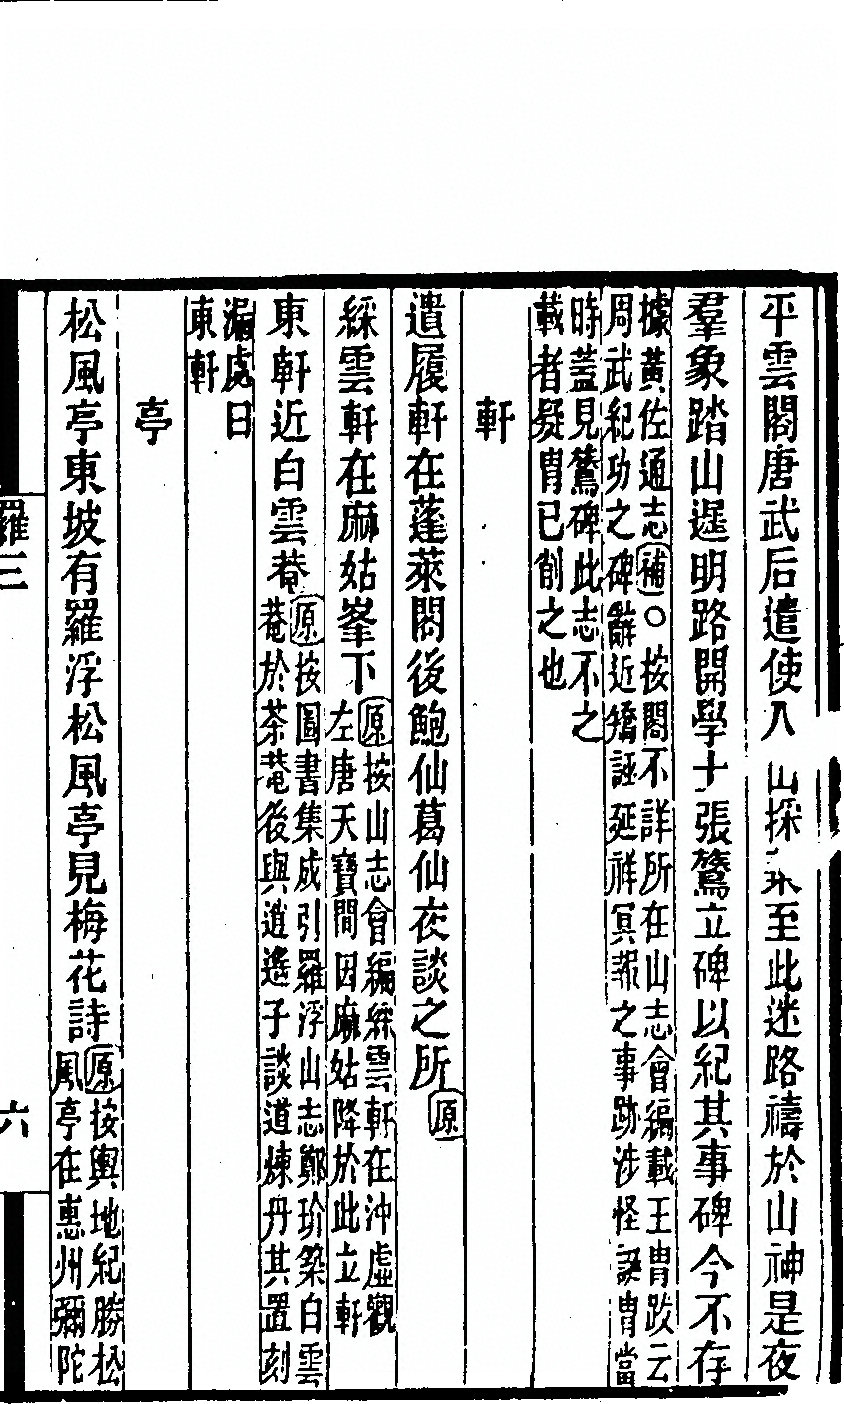 平雲閣唐武后遣使入山採藥至此迷路禱於山神是夜
羣象踏山遲明路開學士張鷟立碑以紀其事碑今不存
據黃佐通志補○按閣不詳所在山志會編載王胄跋云
周武紀功之碑辭近矯誣延祥冥報之事跡涉怪誕胄當
時蓋見鷟碑此志不之
載者疑胄已削之也
軒
遺履軒在蓬萊閣後鮑仙葛仙夜談之所原
綵雲軒在麻姑峯下
原按山志會編綵雲軒在沖虛觀
左唐天寶間因麻姑降於此立軒
東軒近白雲菴
原按圖書集成引羅浮山志鄭玠築白雲
菴於茶菴後與逍遙子談道煉丹其置刻
漏處曰
東軒
亭
松風亭東坡有羅浮松風亭見梅花詩
原按輿地紀勝松
風亭在惠州彌陀
羅三
六